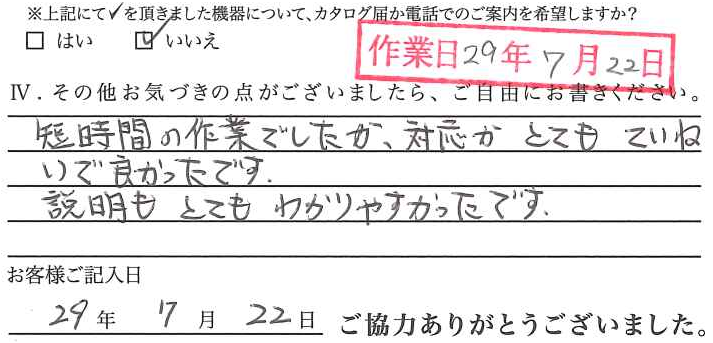 ※上記にて✓を頂きました機器について、カタログ届か電話でのご案内を希望しますか?
□ はい ☑ いいえ
作業日29年7月22日
Ⅳ．その他お気づきの点がございましたら、ご自由にお書きください。
短時間の作業でしたが、対応がとてもていね
いで良かったです.
説明もとてもわかりやすかったです.
お客様ご記入日
29年 7月 22日 ご協力ありがとうございました。